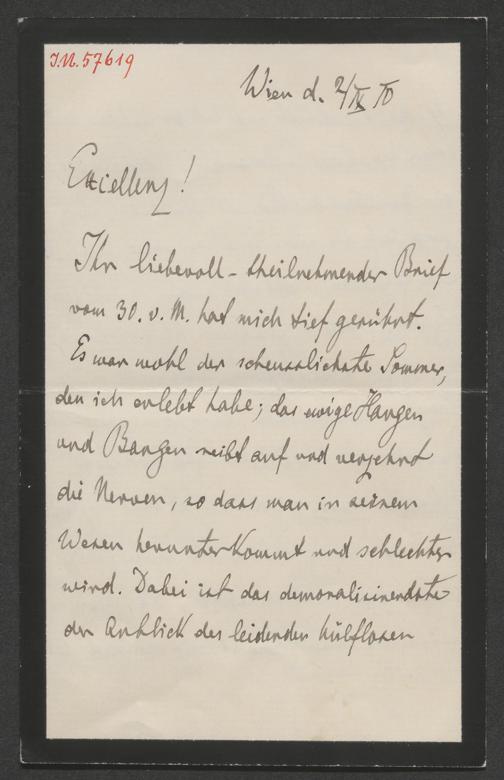 J.N. 57619
Wien d. 2/IX 10
Excellenz!
Ihr liebevoll-theilnehmender Brief
vom 30. v. M. hat mich tief gerührt.
Es war wohl der scheusslichste Sommer,
den ich erlebt habe; das ewige Hangen
und Bangen reibt auf und verzehrt
die Nerven, so dass man in seinem
Wesen herunterkommt und schlechter
wird. Dabei ist das demoralisirendste
der Anblick des leidenden hülflosen